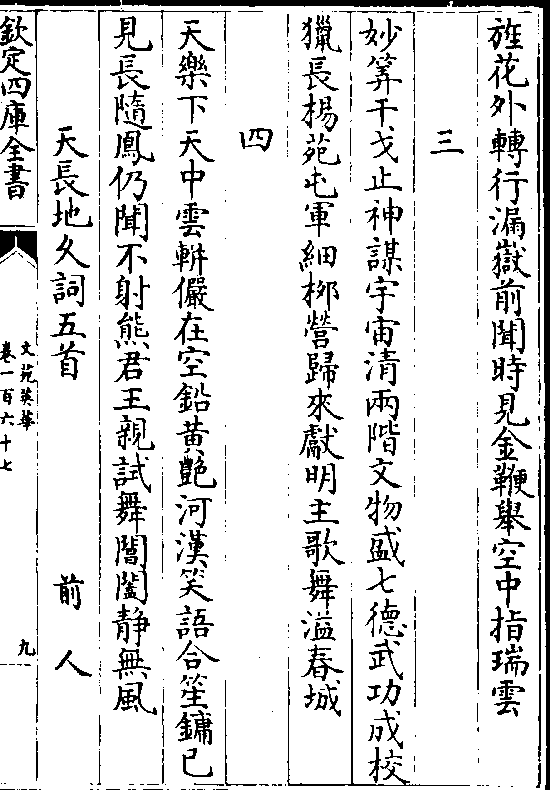 旌花外轉行漏嶽前聞時見金鞭舉空中指瑞雲
三
妙筭干戈止神謀宇宙清兩階文物盛七德武功成校
獵長楊苑屯軍細栁營歸來獻明主歌舞溢春城
四
天樂下天中雲軿儼在空鉛黄艷河漢笑語合笙鏞已
見長隨鳳仍聞不射熊君王親試舞閶闔静無風
天長地久詞五首 前人
欽定四庫全書
文苑英華
卷一百六十七
九